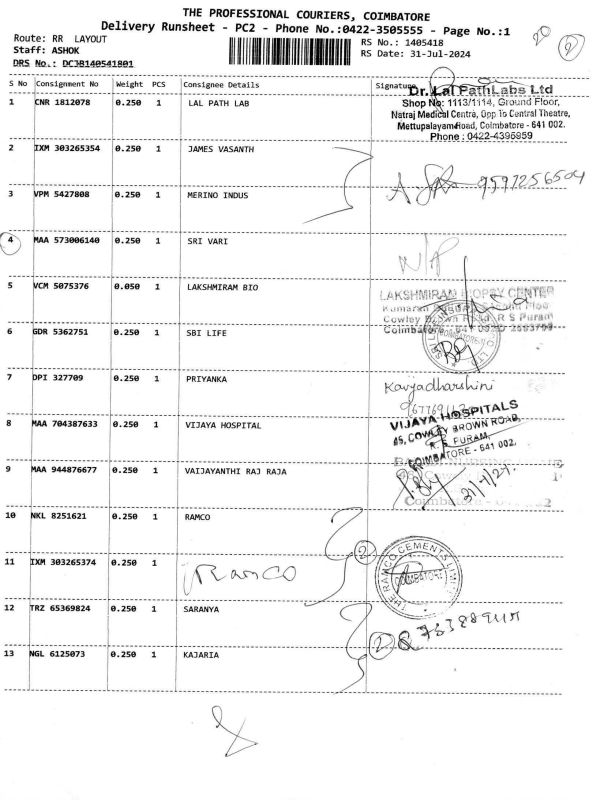 THE PROFESSIONAL COURIERS, COIMBATORE
Delivery Runsheet - PC2 - Phone No.:0422-3505555 - Page No.:1
Route: RR LAYOUT
RS No.: 1405418
Staff: ASHOK
RS Date: 31-Jul-2024
DRS No.: DCJB140541801
20
2
S No Consignment No Weight PCS Consignee Details Signature
1 CNR 1812078 0.250 1 LAL PATH LAB
Dr. Lal PathLabs Ltd
Shop No: 1113/1114, Ground Floor,
Natraj Medical Centre, Opp. to Central Theatre,
Mettupalayam Road, Coimbatore - 641 002.
Phone : 0422-4395959
2 IXM 303265354 0.250 1 JAMES VASANTH
3 VPM 5427808 0.250 1 MERINO INDUS
9597256504
4 MAA 573006140 0.250 1 SRI VARI
N/P
5 VCM 5075376 0.050 1 LAKSHMIRAM BIO
LAKSHMIRAM BIOPSY CENTER
Cowley Brown Road, R S Puram
6 GDR 5362751 0.250 1 SBI LIFE
7 DPI 327709 0.250 1 PRIYANKA
Kavyadharshini
8 MAA 704387633 0.250 1 VIJAYA HOSPITAL
VIJAYA HOSPITALS
45, COWLEY BROWN ROAD,
R. S. PURAM,
COIMBATORE - 641 002.
9 MAA 944876677 0.250 1 VAIJAYANTHI RAJ RAJA
31/7/24.
10 NKL 8251621 0.250 1 RAMCO
11 IXM 303265374 0.250 1
Ramco
2
THE RAMCO CEMENTS LIMITED
COIMBATORE
12 TRZ 65369824 0.250 1 SARANYA
2
13 NGL 6125073 0.250 1 KAJARIA